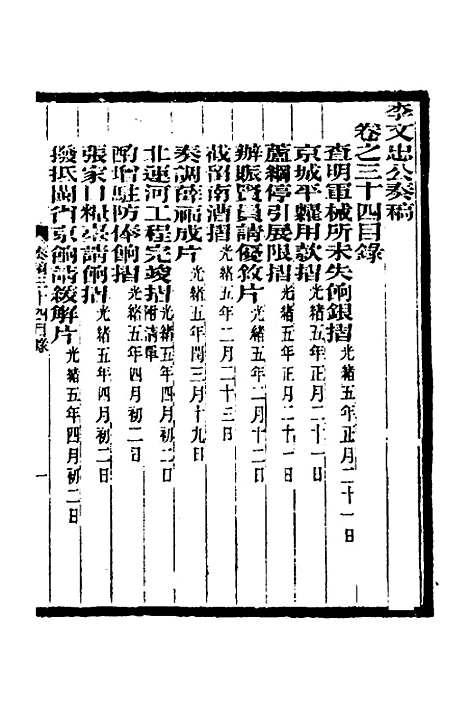 李文忠公奏稿
卷之三十四目錄
查明軍械所未失餉銀摺光緒五年正月二十一日
京城平糶用款摺光緒五年正月二十一日
蘆綱停引展限摺光緒五年正月二十一日
辦賑員請優敘片光緒五年二月十二日
截留南漕摺光緒五年二月二十三日
奏調薛福成片光緒五年閏三月十九日
北運河工程完竣摺附清單光緒五年四月初二日
酌增駐防俸餉摺光緒五年四月初二日
張家口糧臺請餉摺光緒五年四月初二日
撥抵閩省京餉請敘解片光緒五年四月初二日
奏稿三十四目錄
一